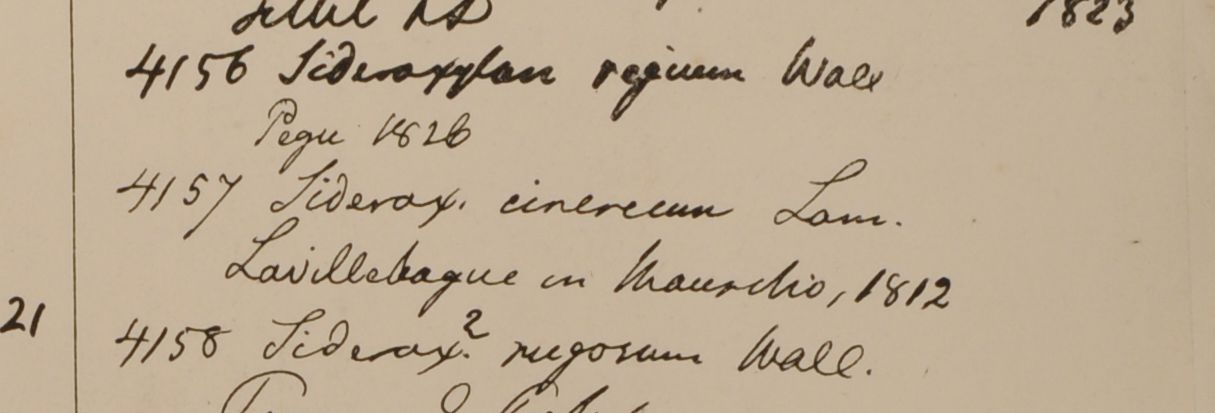 1823
4156 Sideroxylon regium Wall
Pegu 1826
4157 Siderox. cinereum Lam.
Lavillebague in Mauritio, 1812
21
4158 Siderox.? rugosum Wall.